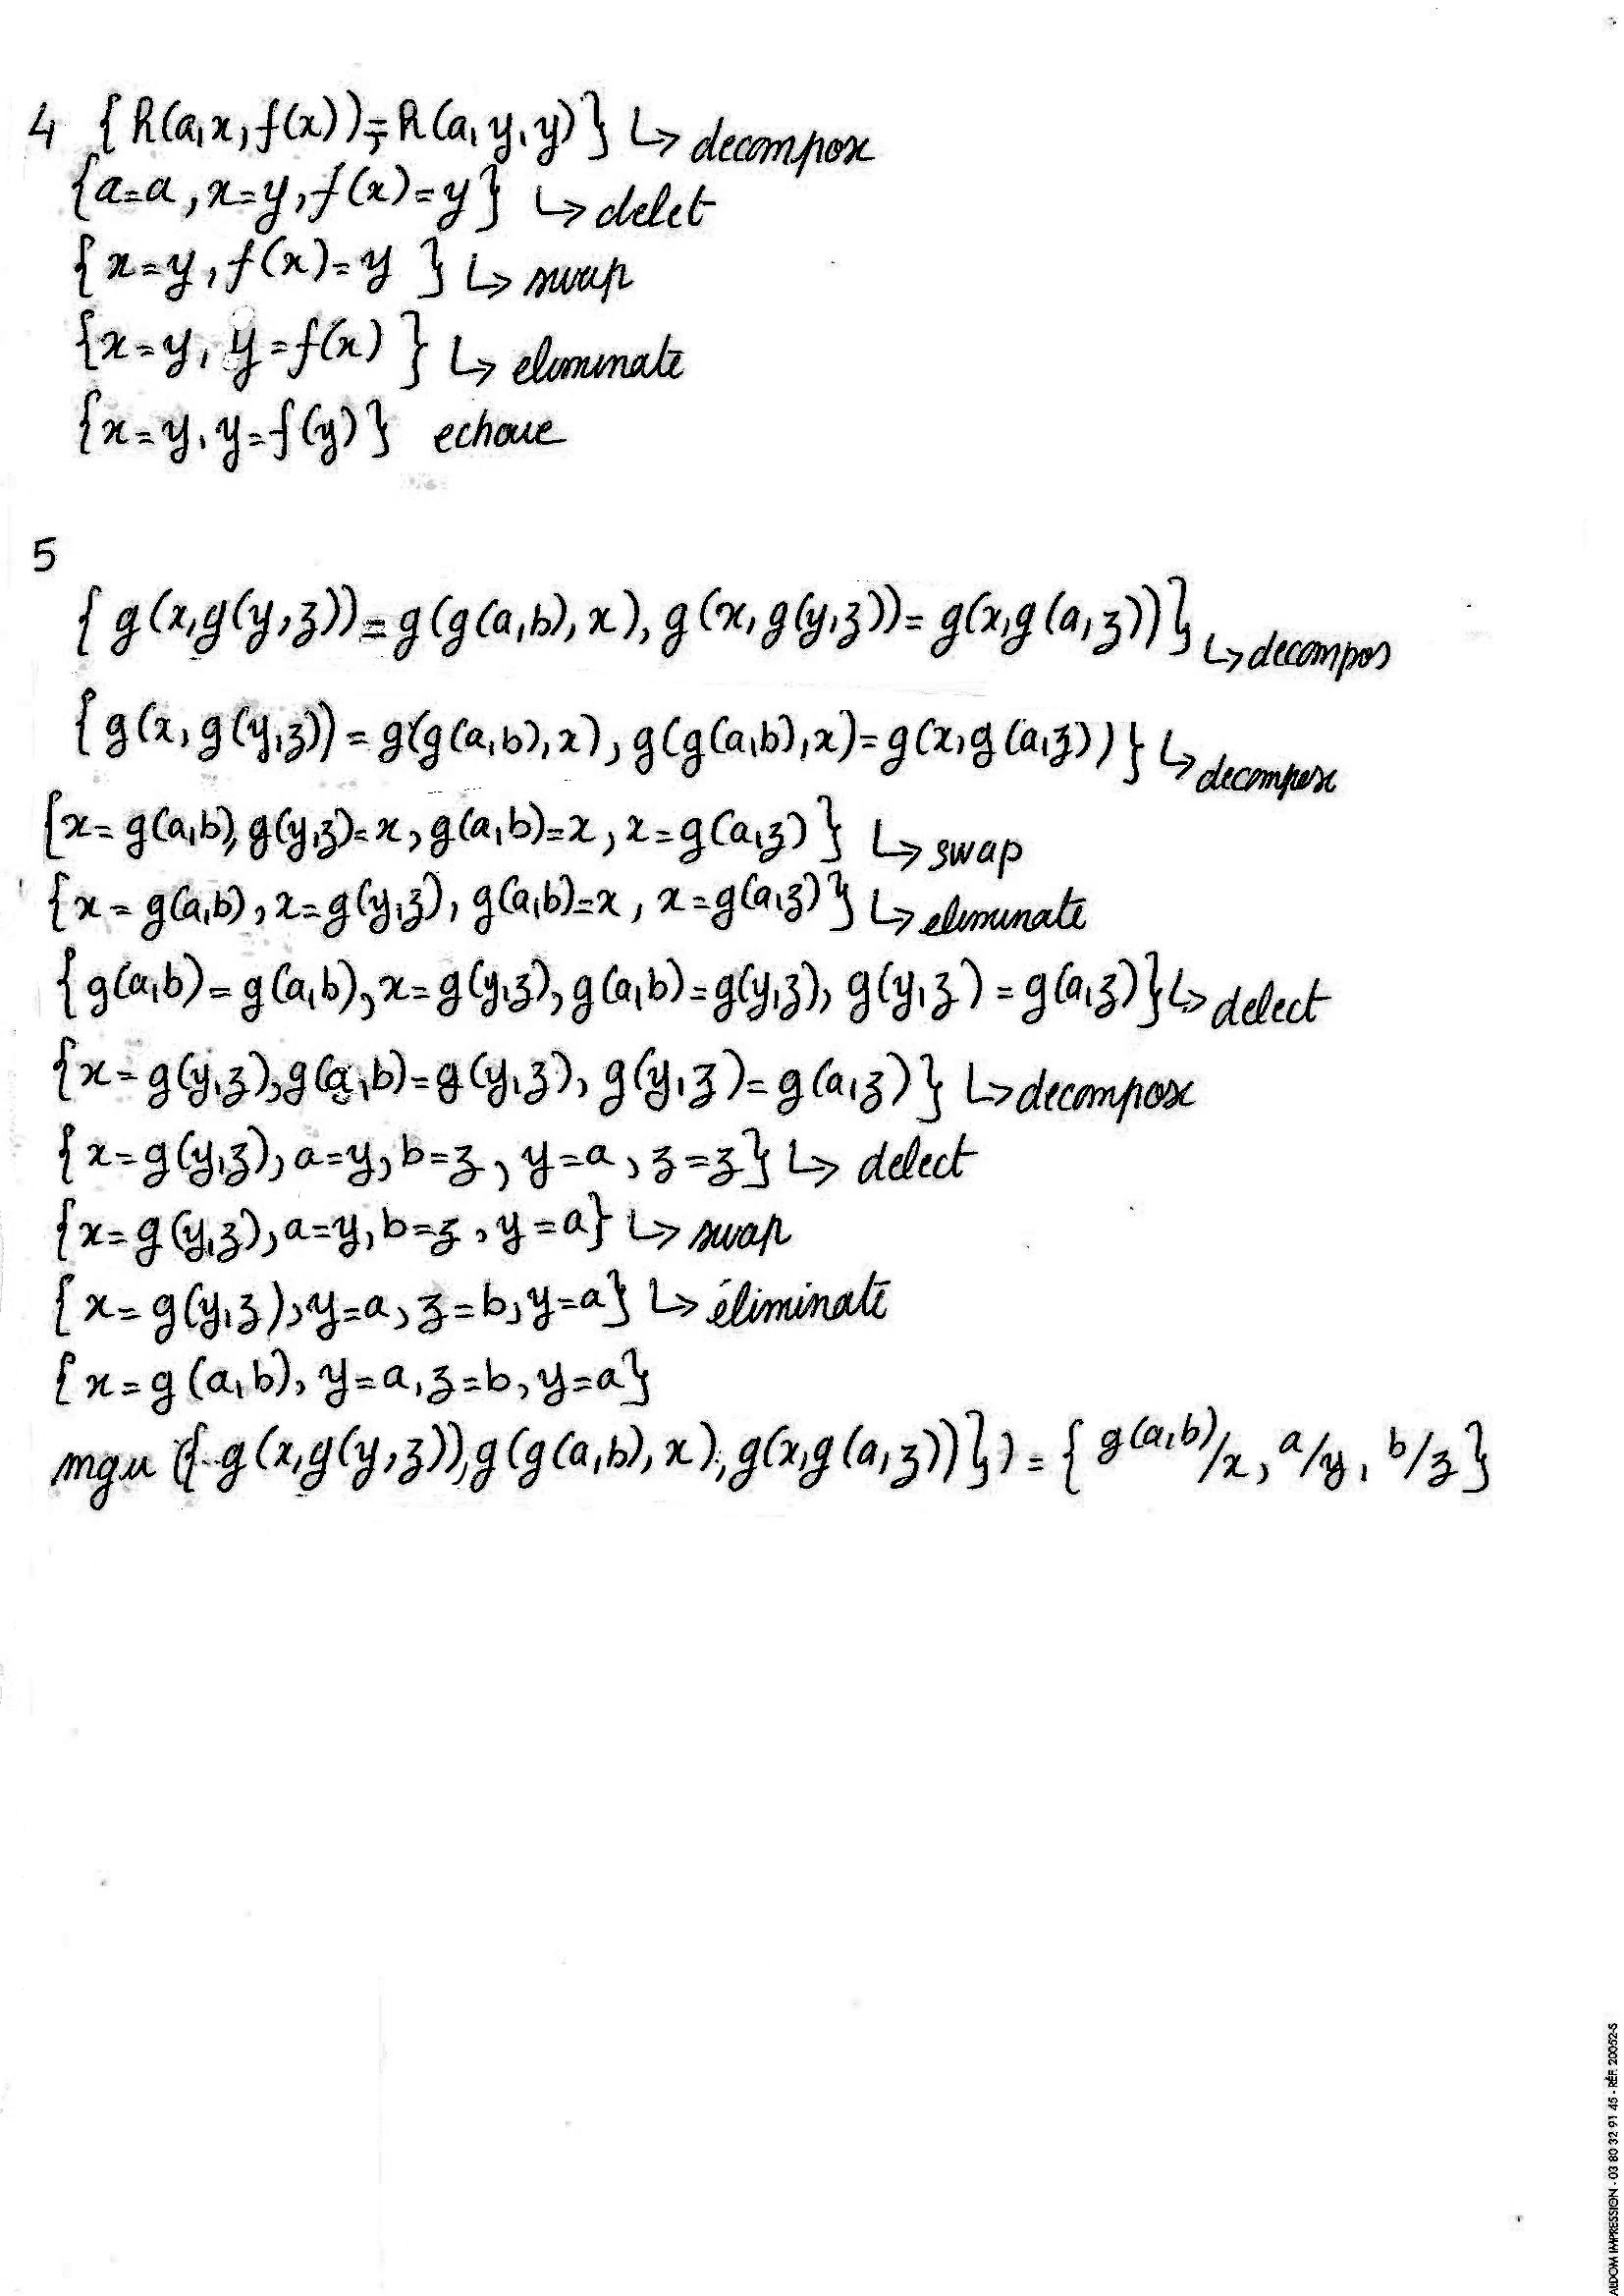 4 { R(a,x,f(x))=R(a,y,y)} ↳ decompose
{a=a,x=y,f(x)=y} ↳ delet
{x=y,f(x)=y } ↳ swap
{x=y, y=f(x) } ↳ eliminate
{x=y, y=f(y)} echoue
5
{ g(x,g(y,z))=g(g(a,b),x), g(x,g(y,z))=g(x,g(a,z))} ↳decompos
{g(x,g(y,z))=g(g(a,b),x), g(g(a,b),x)=g(x,g(a,z))} ↳ decompose
{x=g(a,b), g(y,z)=x, g(a,b)=x, x=g(a,z)} ↳ swap
{x=g(a,b), x=g(y,z), g(a,b)=x, x=g(a,z)} ↳ eliminate
{g(a,b)=g(a,b), x=g(y,z), g(a,b)=g(y,z), g(y,z)=g(a,z)} ↳ delect
{x=g(y,z), g(a,b)=g(y,z), g(y,z)=g(a,z)} ↳ decompose
{x=g(y,z), a=y, b=z, y=a, z=z} ↳ delect
{x=g(y,z), a=y, b=z, y=a} ↳ swap
{x=g(y,z), y=a, z=b, y=a} ↳ éliminate
{x=g(a,b), y=a, z=b, y=a}
mgu ({ g(x,g(y,z)), g(g(a,b),x), g(x,g(a,z))}) = { g(a,b)/x, a/y, b/z}
ALDOM IMPRESSION - 03 80 32 91 45 - RÉF. 20052-S